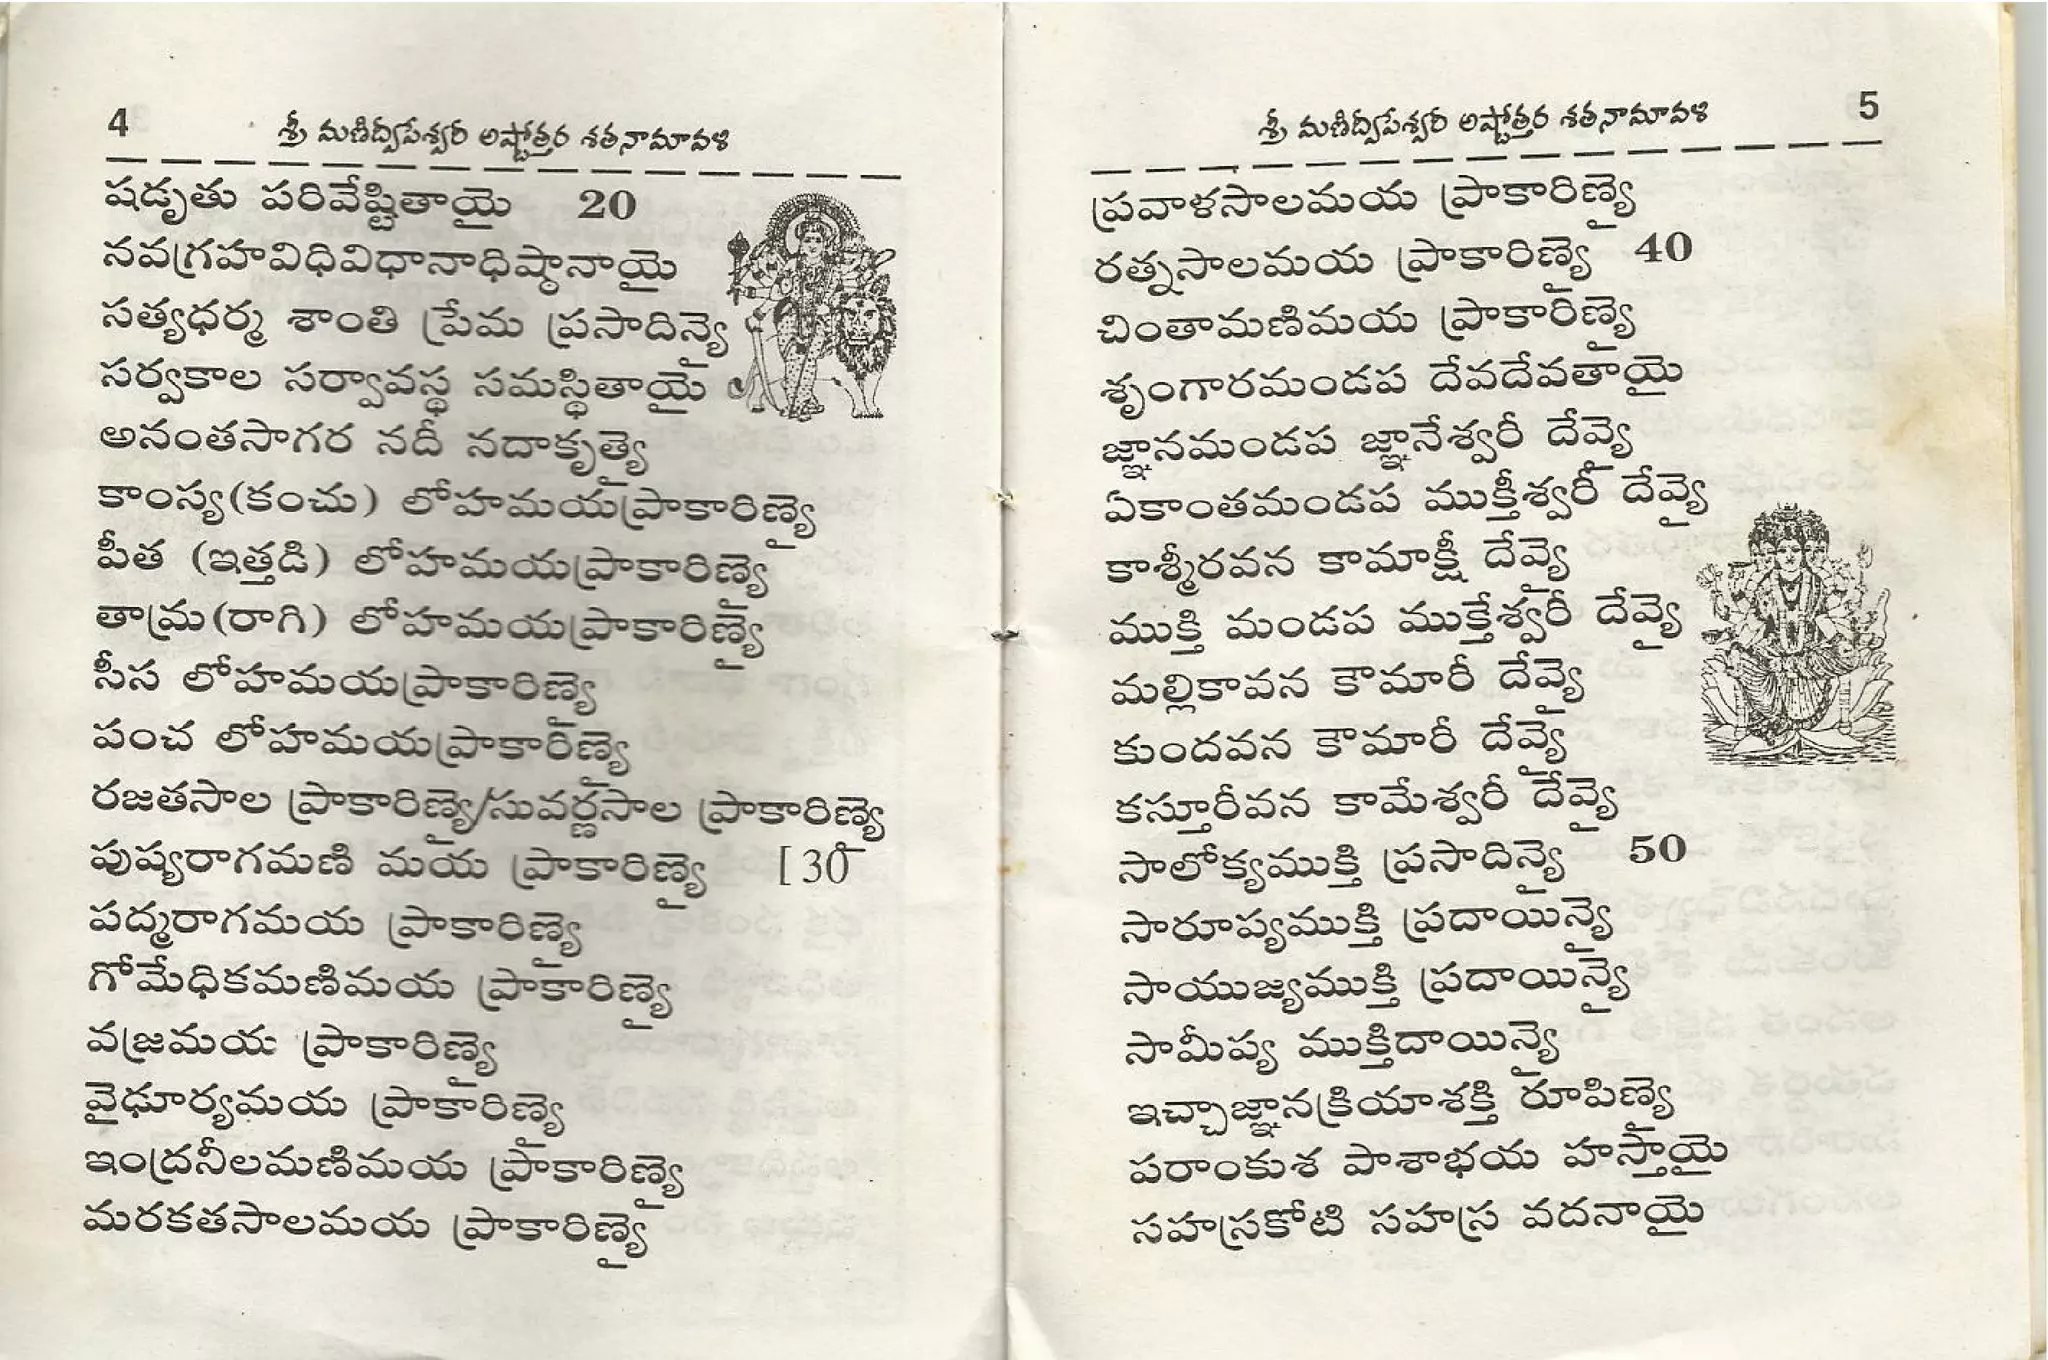 4
శ్రీ మణిద్వీపేశ్వరీ అష్టోత్తర శతనామావళి
షడృతు పరివేష్టితాయై 20
నవగ్రహవిధివిధానాధిష్ఠానాయై
సత్యధర్మ శాంతి ప్రేమ ప్రసాదిన్యై
సర్వకాల సర్వావస్థ సమస్థితాయై
అనంతసాగర నదీ నదాకృత్యై
కాంస్య(కంచు) లోహమయప్రాకారిణ్యై
పీత (ఇత్తడి) లోహమయప్రాకారిణ్యై
తామ్ర(రాగి) లోహమయప్రాకారిణ్యై
సీస లోహమయప్రాకారిణ్యై
పంచ లోహమయప్రాకారిణ్యై
రజతసాల ప్రాకారిణ్యై/సువర్ణసాల ప్రాకారిణ్యై
పుష్యరాగమణి మయ ప్రాకారిణ్యై [30
పద్మరాగమయ ప్రాకారిణ్యై
గోమేధికమణిమయ ప్రాకారిణ్యై
వజ్రమయ ప్రాకారిణ్యై
వైఢూర్యమయ ప్రాకారిణ్యై
ఇంద్రనీలమణిమయ ప్రాకారిణ్యై
మరకతసాలమయ ప్రాకారిణ్యై
శ్రీ మణిద్వీపేశ్వరీ అష్టోత్తర శతనామావళి
5
ప్రవాళసాలమయ ప్రాకారిణ్యై
రత్నసాలమయ ప్రాకారిణ్యై 40
చింతామణిమయ ప్రాకారిణ్యై
శృంగారమండప దేవదేవతాయై
జ్ఞానమండప జ్ఞానేశ్వరీ దేవ్యై
ఏకాంతమండప ముక్తీశ్వరీ దేవ్యై
కాశ్మీరవన కామాక్షీ దేవ్యై
ముక్తి మండప ముక్తేశ్వరీ దేవ్యై
మల్లికావన కౌమారీ దేవ్యై
కుందవన కౌమారీ దేవ్యై
కస్తూరీవన కామేశ్వరీ దేవ్యై
సాలోక్యముక్తి ప్రసాదిన్యై 50
సారూప్యముక్తి ప్రదాయిన్యై
సాయుజ్యముక్తి ప్రదాయిన్యై
సామీప్య ముక్తిదాయిన్యై
ఇచ్చాజ్ఞానక్రియాశక్తి రూపిణ్యై
పరాంకుశ పాశాభయ హస్తాయై
సహస్రకోటి సహస్ర వదనాయై